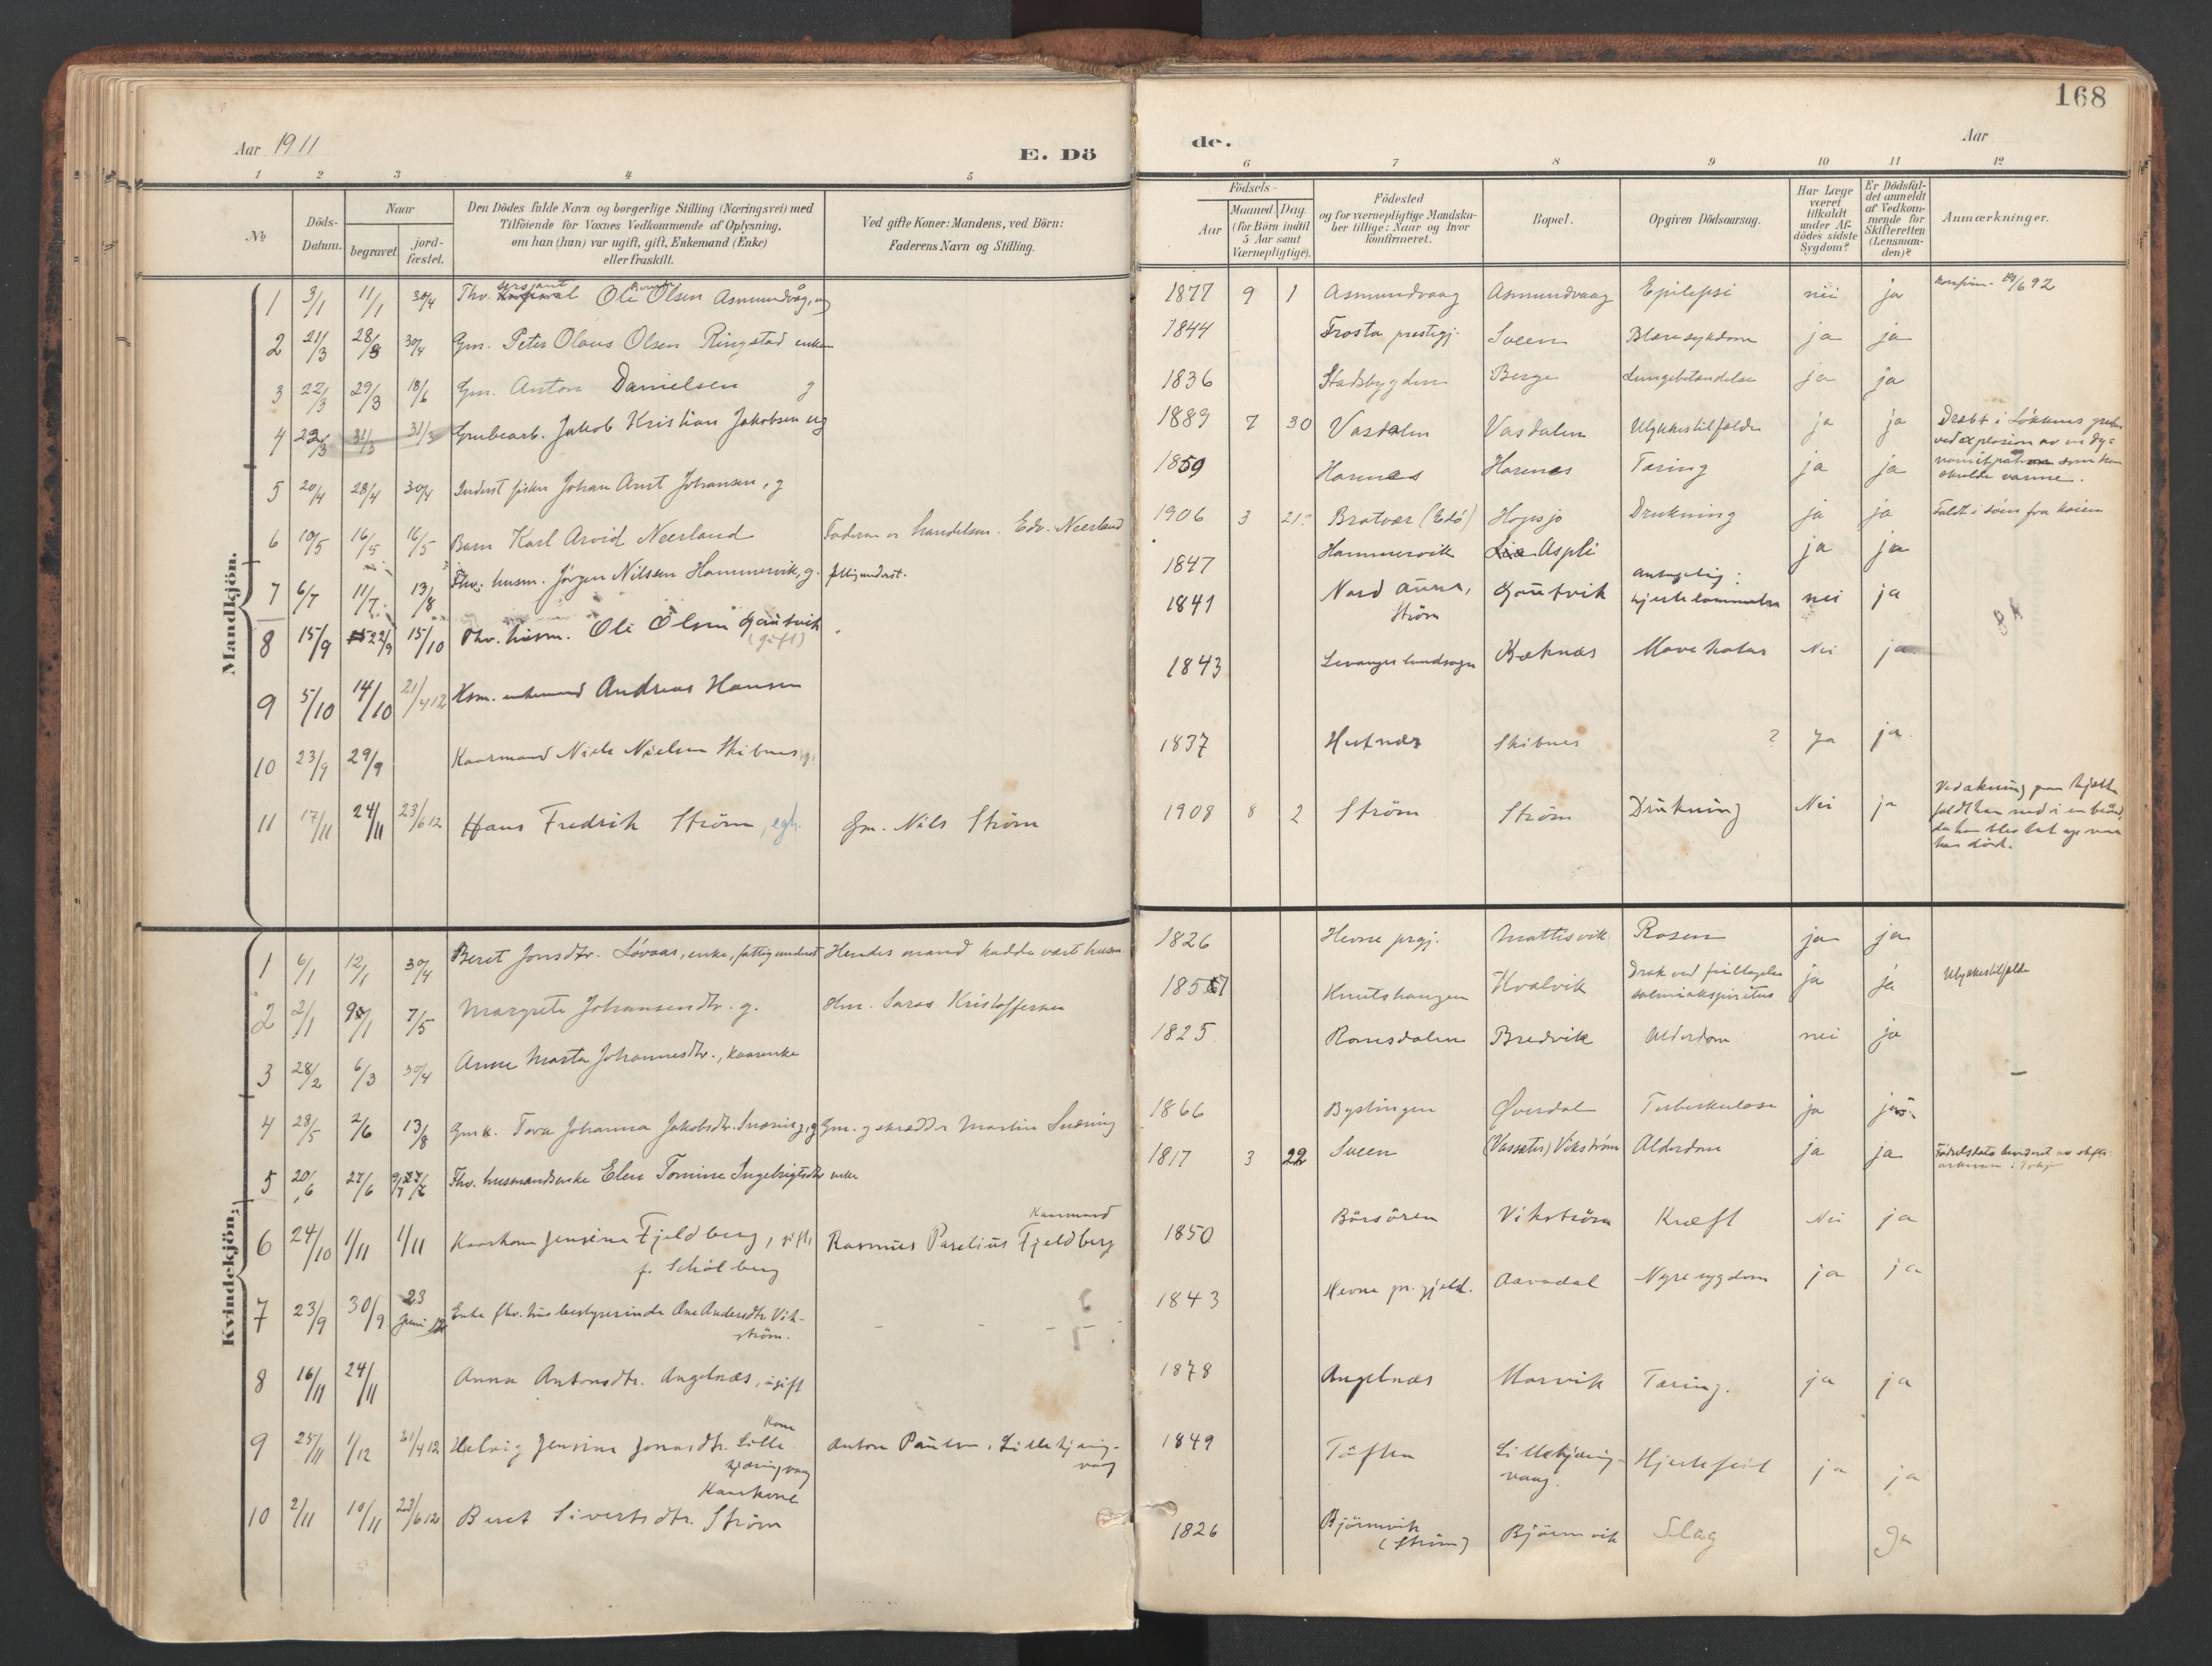 168
Aar 1911
E. Dö
de.
Aar
1 2 3 4 5
6 7 8 9 10 11 12
No
Döds-Datum.
Naar
begravet.
jord-fæstet.
Den Dödes fulde Navn og borgerlige Stilling (Næringsvei) med
Tilföiende for Voxnes Vedkommende af Oplysning,
om han (hun) var ugift, gift, Enkemand (Enke)
eller fraskilt.
Ved gifte Koner: Mandens, ved Börn:
Faderens Navn og Stilling.
Födsels-
Aar
Maaned. Dag.
(for Börn indtil
5 Aar samt
Værnepligtige).
Födested
og for værnepligtige Mandska-
ber tillige: Naar og hvor
konfirmeret.
Bopæl.
Opgiven Dödsaarsag.
Har Læge
været
tilkaldt
under Af-
dödes sidste
Sygdom?
Er Dödsfal-
det anmeldt
af Vedkom-
mende for
Skifteretten
(Lensman-
den)?
Anmærkninger.
Mandkjön.
1 3/1 11/1 30/4 Fhv. sersjant Ole Olsen Asmundvåg, ug 1877 9 1 Asmundvaag Asmundvaag Epilepsi nei ja Konfirm. 19/6 92
2 21/3 28/3 30/4 Gm. Peter Olaus Olsen Ringstad enkem 1844 Frosta prestegj. Sveen Blæresykdom ja ja
3 22/3 29/3 18/6 Gm. Anton Danielsen g 1836 Stadsbygden Berge Lungebetændelse ja ja
4 23/3 31/3 31/3 Grubearb. Jakob Kristian Jakobsen ug 1889 7 30 Vasdalen Vasdalen Ulykkestilfælde ja ja Dræbt i Løkkens gruber
ved explosion av en dy=
namitpatron som han
skulde varme.
5 20/4 28/4 30/4 Inderst fisker Johan Arnt Johansen, g 1859 Harenes Harenes Tæring ja ja
6 10/5 16/5 16/5 Barn Karl Arvid Neerland Faderen er handelsm. Edv. Neerland 1906 3 21 Bratvær (Edö) Hopsjo Drukning ja ja Faldt i sjöen fra kaien
7 6/7 11/7 13/8 Fhv. husm. Jörgen Nilsen Hammervik, g. fattigunderst. 1847 Hammervik Aspli ja ja
8 15/9 22/9 15/10 Fhv. husm. Ole Olsen Gautvik (gift) 1841 Nord aune, Ström Gautvik antagelig: hjertelammelse nei ja
9 5/10 14/10 21/4 12 Hsm. enkemand Andreas Hansen 1843 Levanger landsogn Bæknæs Mavekatar Nei ja
10 23/9 29/9 Kaarmand Niels Nielsen Skibnes, g. 1837 Hestnæs Skibnes ? Ja ja
11 17/11 24/11 23/6 12 Hans Fredrik Ström, egt. Gm. Nils Ström 1908 8 2 Ström Ström Drukning Nei ja Ved akning paa kjelke
faldt han ned i en brönd,
da han blev tat op var
han död.
Kvindekjön.
1 6/1 12/1 30/4 Beret Jonsdtr. Lövaas, enke, fattigunderst Hendes mand hadde vært husm. 1826 Hevne prgj. Mattisvik Rosen ja ja
2 2/1 9/1 7/5 Margrete Johansendtr. g. Hm. Kristoffersen 1857 Knutshaugen Kvalvik Drak ved feiltagelse
salmiakspiritus ja ja Ulykkestilfælde
3 28/2 6/3 30/4 Anne Marta Johannesdtr., kaarenke 1825 Romsdalen Bredvik Alderdom nei ja
4 28/5 2/6 13/8 Gmk. Tora Johanna Jakobsdtr. Snæring, g Gm. g skrædder Martin Snæring 1866 Bystingen Överdal Tuberkulose ja ja
5 20/6 27/6 Fhv. husmandsenke Elen Tomine Ingebrigtsdtr enke 1817 3 22 Sveen (Vassætr) Vikström Alderdom ja ja
6 24/10 1/11 1/11 Kaarkone Jensine Fjeldberg, gift, f. Schölberg Kaarmand Rasmus Parelius Fjeldberg 1850 Börsören Vikström Kræft Nei ja
7 23/9 30/9 23 Juni 12 Enke fhv. husbestyrerinde Ane Andersdtr. Vik-
ström. 1843 Hevne pr.gjeld. Aavadal Nyresygdom ja ja
8 16/11 24/11 Anna Antonsdtr. Angelnæs, ugift 1878 Angelnæs Marvik Tæring. ja ja
9 25/11 1/12 21/4 12 Kone Helvig Jensine Jonasdtr. Lille
kjæringvaag Anton Paulsen, Lillekjæring-
vaag 1849 Töften Lillekjæring-
vaag. Hjertefeil ja ja
10 2/11 10/11 23/6 12 Kaarkone Beret Sivertsdtr. Ström 1826 Björnvik (Ström) Björnvik Slag Ja